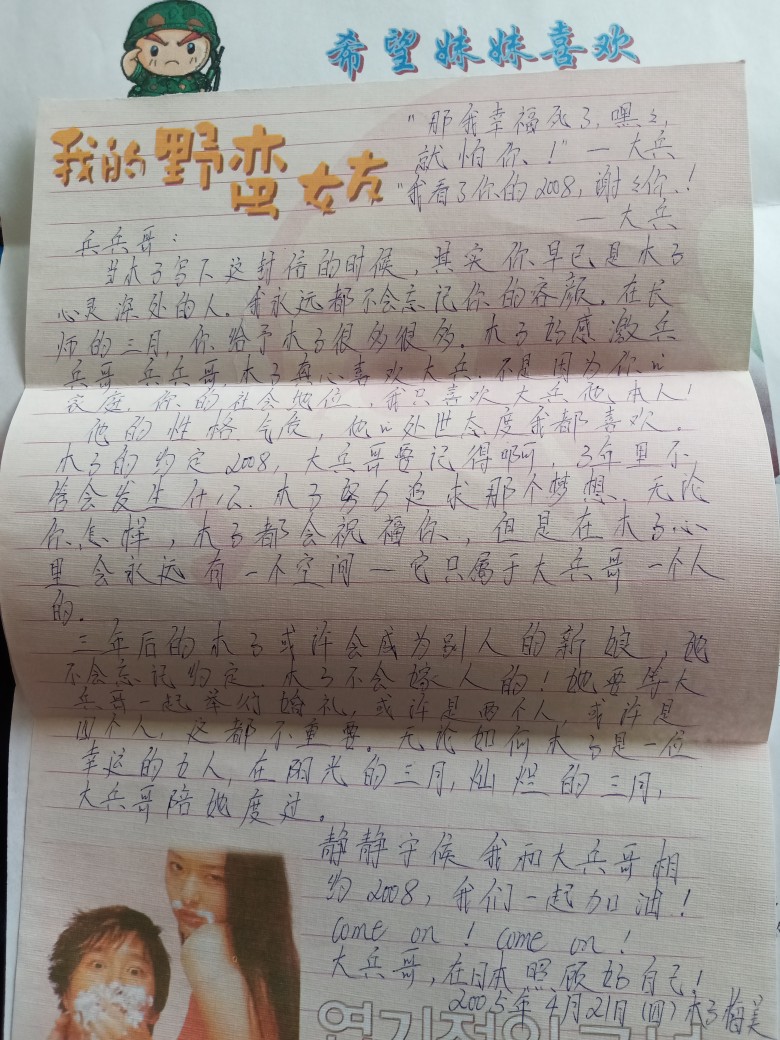 希望妹妹喜欢
我的野蛮女友
"那我幸福死了,嘿々,
就怕你!"—大兵
"我看了你的2008,谢々你!
—大兵
兵兵哥:
当木子写下这封信的时候,其实你早已是木子
心灵深处的人。我永远都不会忘记你的容颜。在长
师的三月,你给予木子很多很多。木子好感激兵
兵哥,兵兵哥,木子真心喜欢大兵,不是因为你的
家庭,你的社会地位,我只喜欢大兵他本人!
他的性格气质,他的处世态度我都喜欢。
木子的约定2008,大兵哥要记得啊,3年里不
管会发生什么,木子努力追求那个梦想,无论
你怎样,木子都会祝福你,但是在木子心
里会永远有一个空间—它只属于大兵哥一个人
的。
三年后的木子或许会成为别人的新娘,她
不会忘记约定,木子不会嫁人的!她要等大
兵哥一起举行婚礼,或许是两个人,或许是
四个人,这都不重要。无论如何木子是一位
幸运的女人,在阳光的三月,灿烂的三月,
大兵哥陪她度过。
静静守候我和大兵哥相
约2008,我们一起加油!
come on! come on!
大兵哥,在日本照顾好自己!
2005年4月21日(四)木子梅
엽기적인 그녀